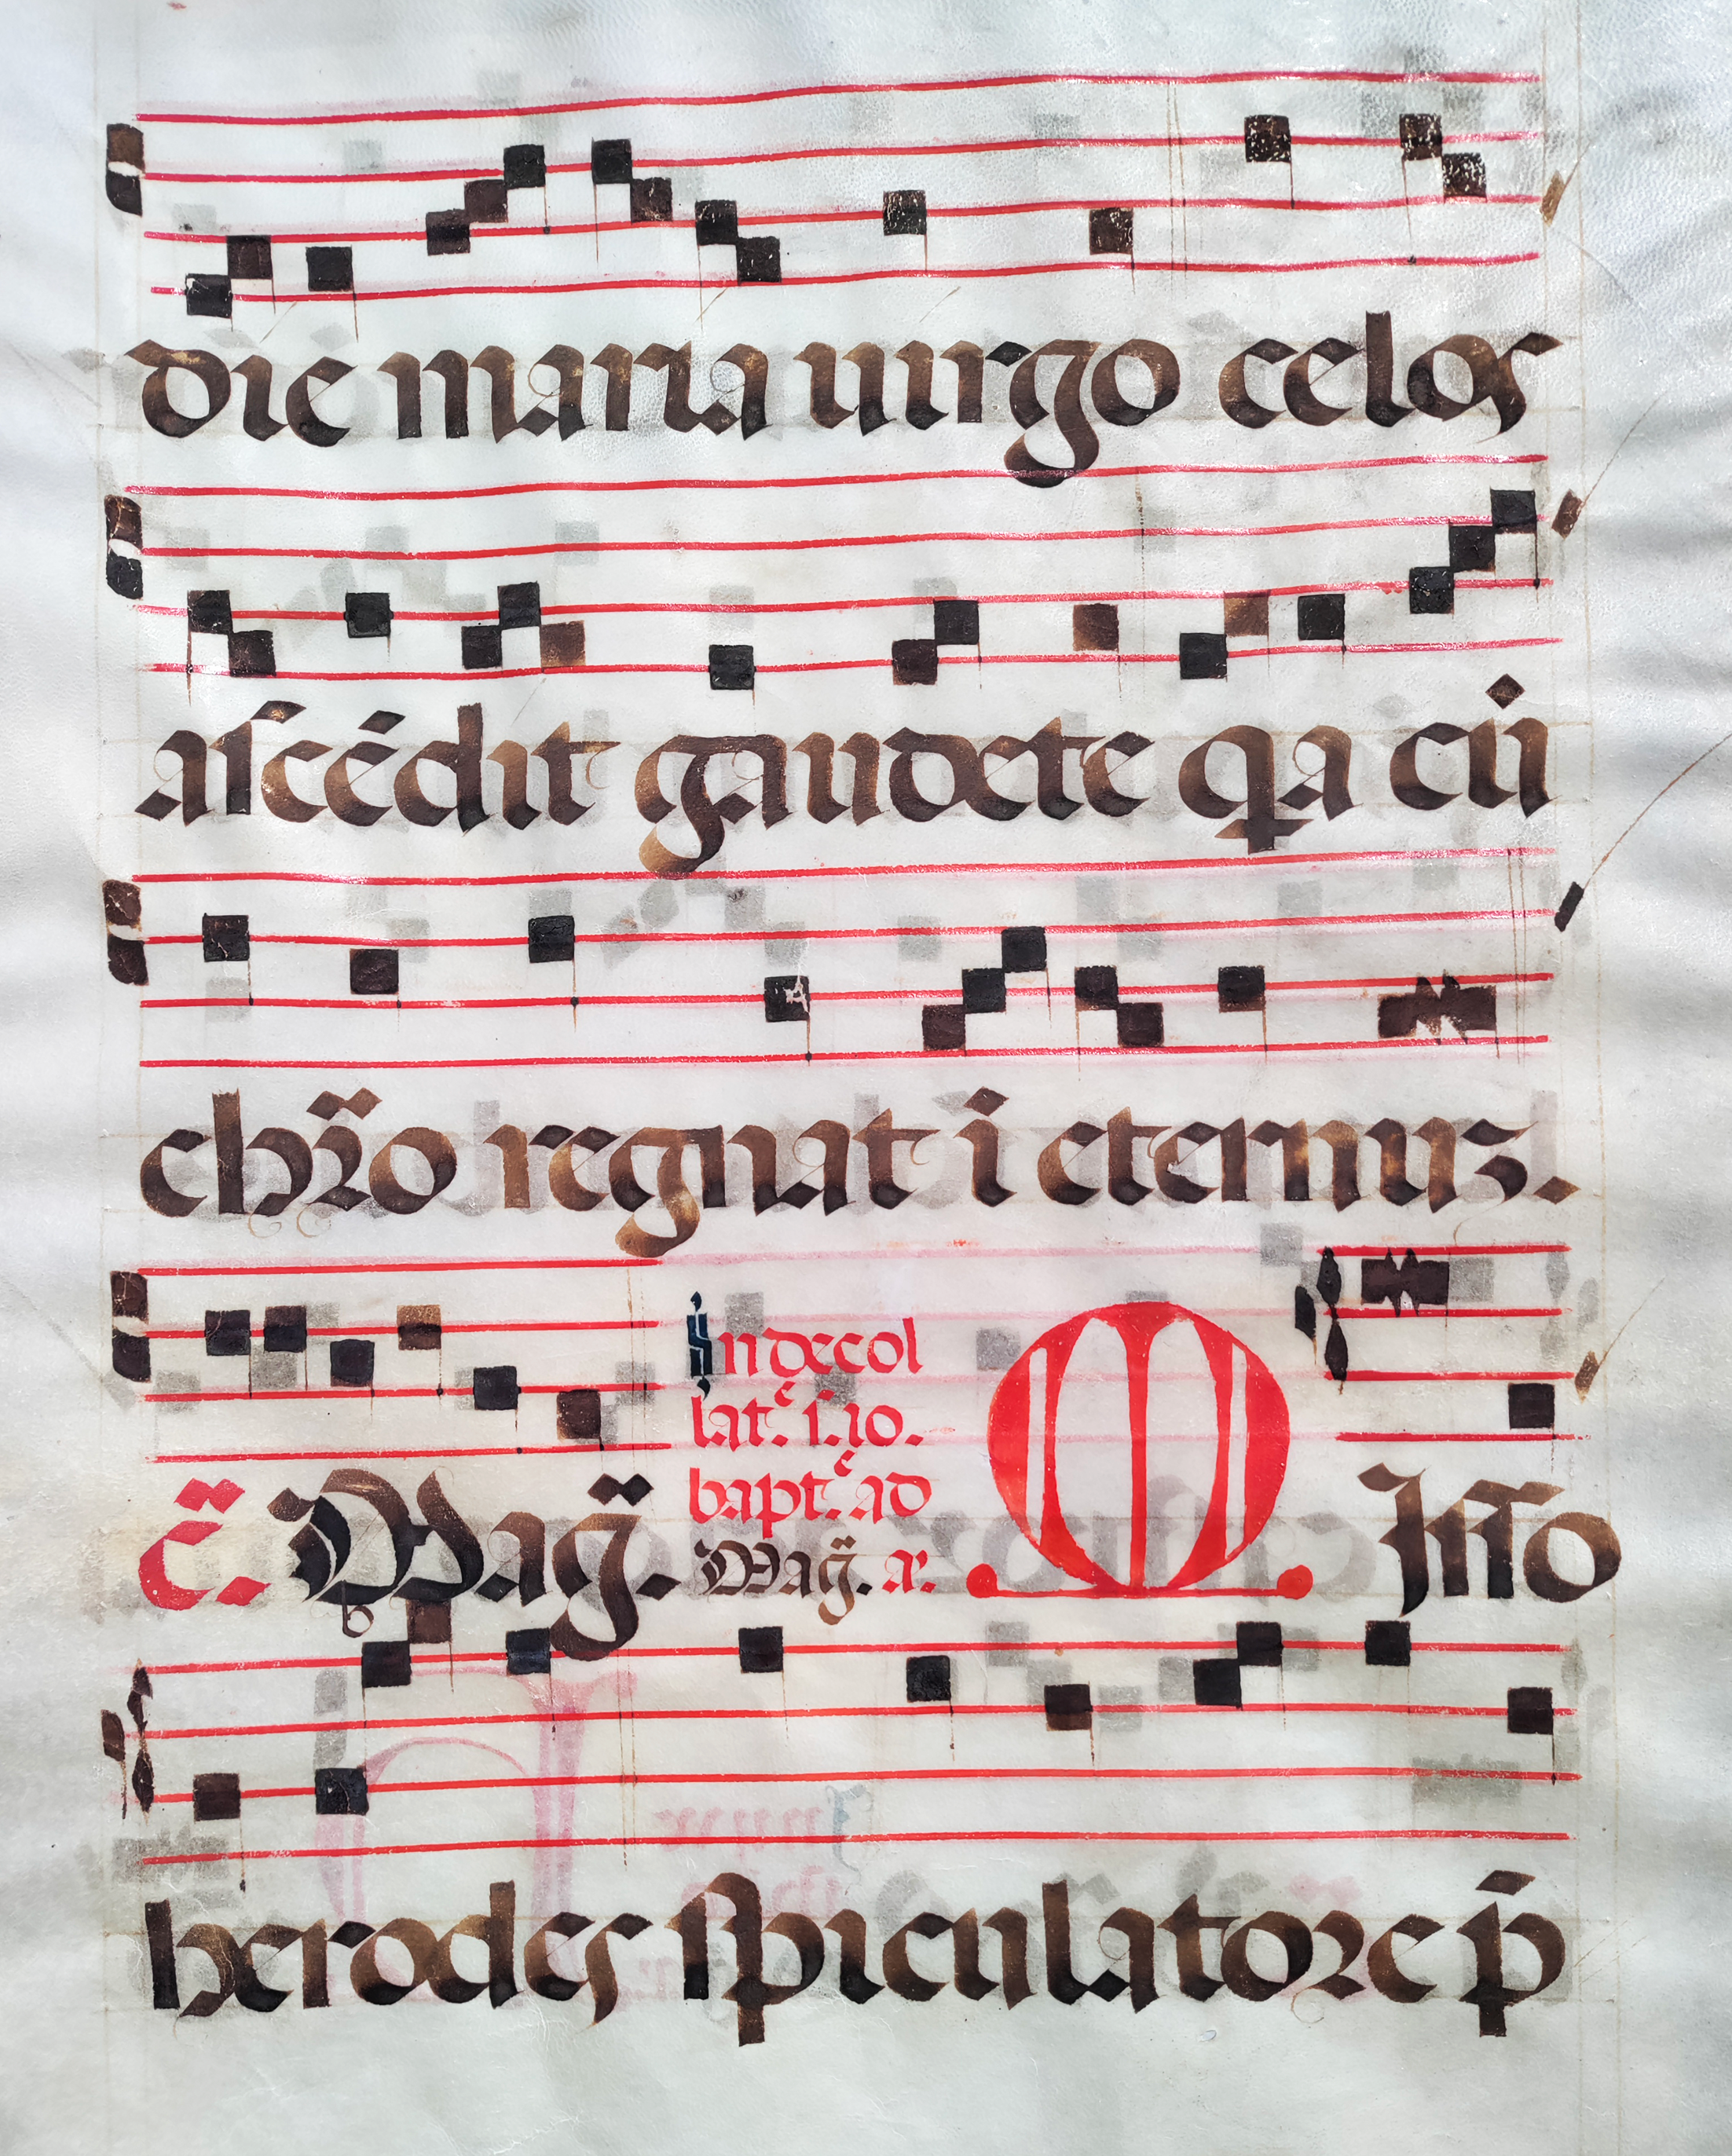 die maria uirgo celos
aſcēdit gaudete qa cū
chr̄o regnat ī eternuz.
c̄. Mag̈.
In decol
lat. i. io.
bapt. ad
Mag̈. a.
Miſſo
herodes ſpiculatore p̄